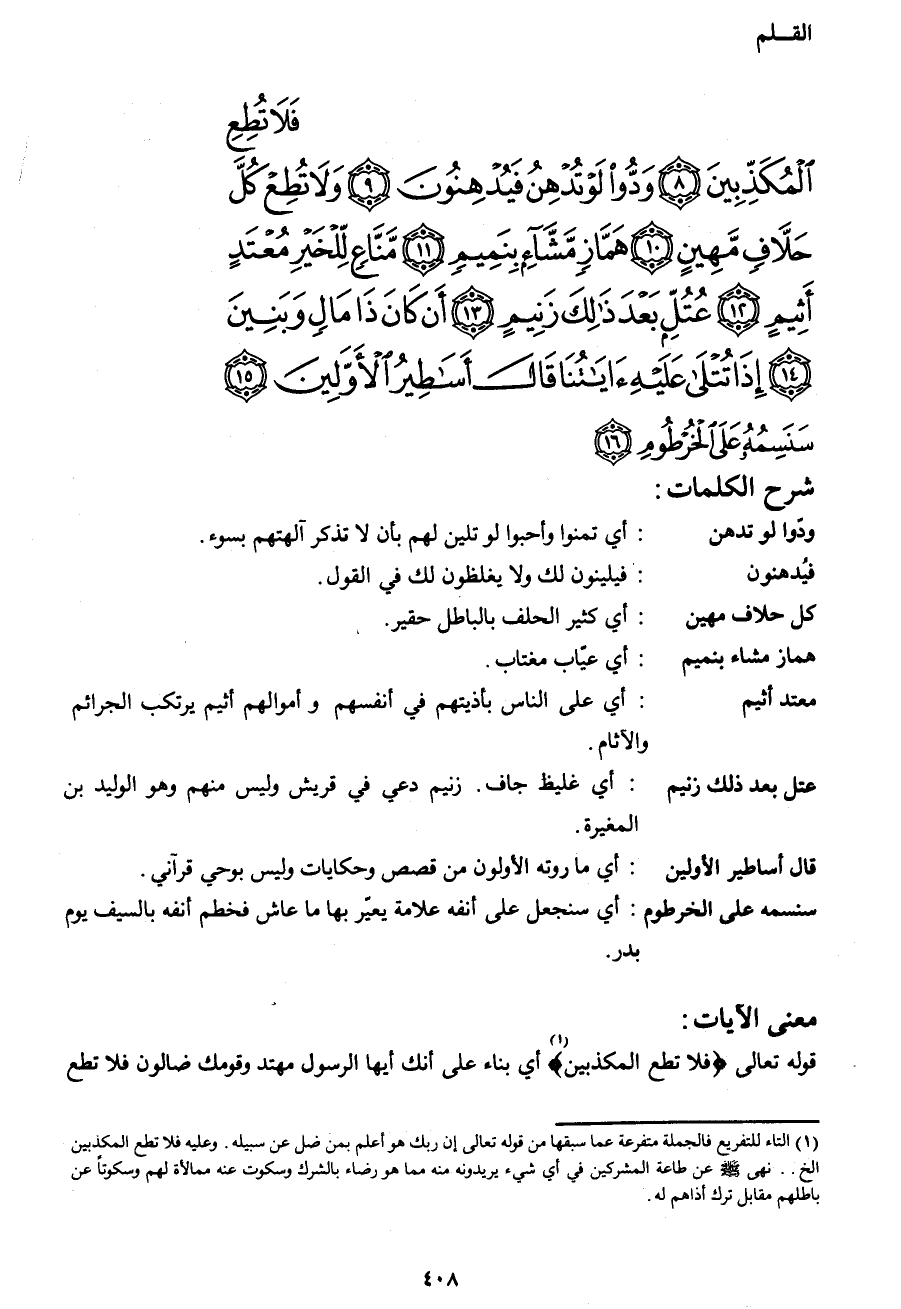 القـلم
فَلَا تُطِعِ
ٱلْمُكَذِّبِينَ ﴿٨﴾ وَدُّوا۟ لَوْ تُدْهِنُ فَيُدْهِنُونَ ﴿٩﴾ وَلَا تُطِعْ كُلَّ
حَلَّافٍ مَّهِينٍ ﴿١٠﴾ هَمَّازٍ مَّشَّآءٍ بِنَمِيمٍ ﴿١١﴾ مَّنَّاعٍ لِّلْخَيْرِ مُعْتَدٍ
أَثِيمٍ ﴿١٢﴾ عُتُلٍّ بَعْدَ ذَٰلِكَ زَنِيمٍ ﴿١٣﴾ أَن كَانَ ذَا مَالٍ وَبَنِينَ
﴿١٤﴾ إِذَا تُتْلَىٰ عَلَيْهِ ءَايَـٰتُنَا قَالَ أَسَـٰطِيرُ ٱلْأَوَّلِينَ ﴿١٥﴾
سَنَسِمُهُۥ عَلَى ٱلْخُرْطُومِ ﴿١٦﴾
شرح الكلمات :
ودّوا لو تدهن : أي تمنوا وأحبوا لو تلين لهم بأن لا تذكر آلهتهم بسوء .
فيُدهنون : فيلينون لك ولا يغلظون لك في القول .
كل حلاف مهين : أي كثير الحلف بالباطل حقير .
هماز مشاء بنميم : أي عيّاب مغتاب .
معتد أثيم : أي على الناس بأذيتهم في أنفسهم و أموالهم أثيم يرتكب الجرائم
والآثام .
عتل بعد ذلك زنيم : أي غليظ جاف . زنيم دعي في قريش وليس منهم وهو الوليد بن
المغيرة .
قال أساطير الأولين : أي ما روته الأولون من قصص وحكايات وليس بوحي قرآني .
سنسمه على الخرطوم : أي سنجعل على أنفه علامة يعيّر بها ما عاش فخطم أنفه بالسيف يوم
بدر .
معنى الآيات :
قوله تعالى ﴿فلا تطع المكذبين﴾(١) أي بناء على أنك أيها الرسول مهتد وقومك ضالون فلا تطع
(١) التاء للتفريع فالجملة متفرعة عما سبقها من قوله تعالى إن ربك هو أعلم بمن ضل عن سبيله . وعليه فلا تطع المكذبين
الخ . . نهى ﷺ عن طاعة المشركين في أي شيء يريدونه منه مما هو رضاء بالشرك وسكوت عنه ممالأة لهم وسكوتاً عن
باطلهم مقابل ترك أذاهم له .
٤٠٨